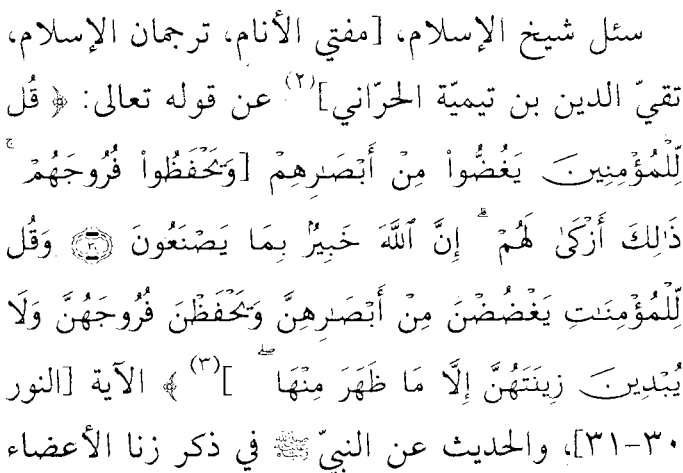 سئل شيخ الإسلام، [مفتي الأنام، ترجمان الإسلام،
تقيّ الدين بن تيميّة الحرّاني](٢) عن قوله تعالى: ﴿ قُل
لِّلْمُؤْمِنِينَ يَغُضُّواْ مِنْ أَبْصَـٰرِهِمْ [وَتَحْفَظُواْ فُرُوجَهُمْ ۚ
ذَٰلِكَ أَزْكَىٰ لَهُمْ ۗ إِنَّ ٱللَّهَ خَبِيرٌۢ بِمَا يَصْنَعُونَ ۝٣٠ وَقُل
لِّلْمُؤْمِنَـٰتِ يَغْضُضْنَ مِنْ أَبْصَـٰرِهِنَّ وَتَحْفَظْنَ فُرُوجَهُنَّ وَلَا
يُبْدِينَ زِينَتَهُنَّ إِلَّا مَا ظَهَرَ مِنْهَا ۖ ](٣) ﴾ الآية [النور
٣٠-٣١]، والحديث عن النبيّ ﷺ في ذكر زنا الأعضاء